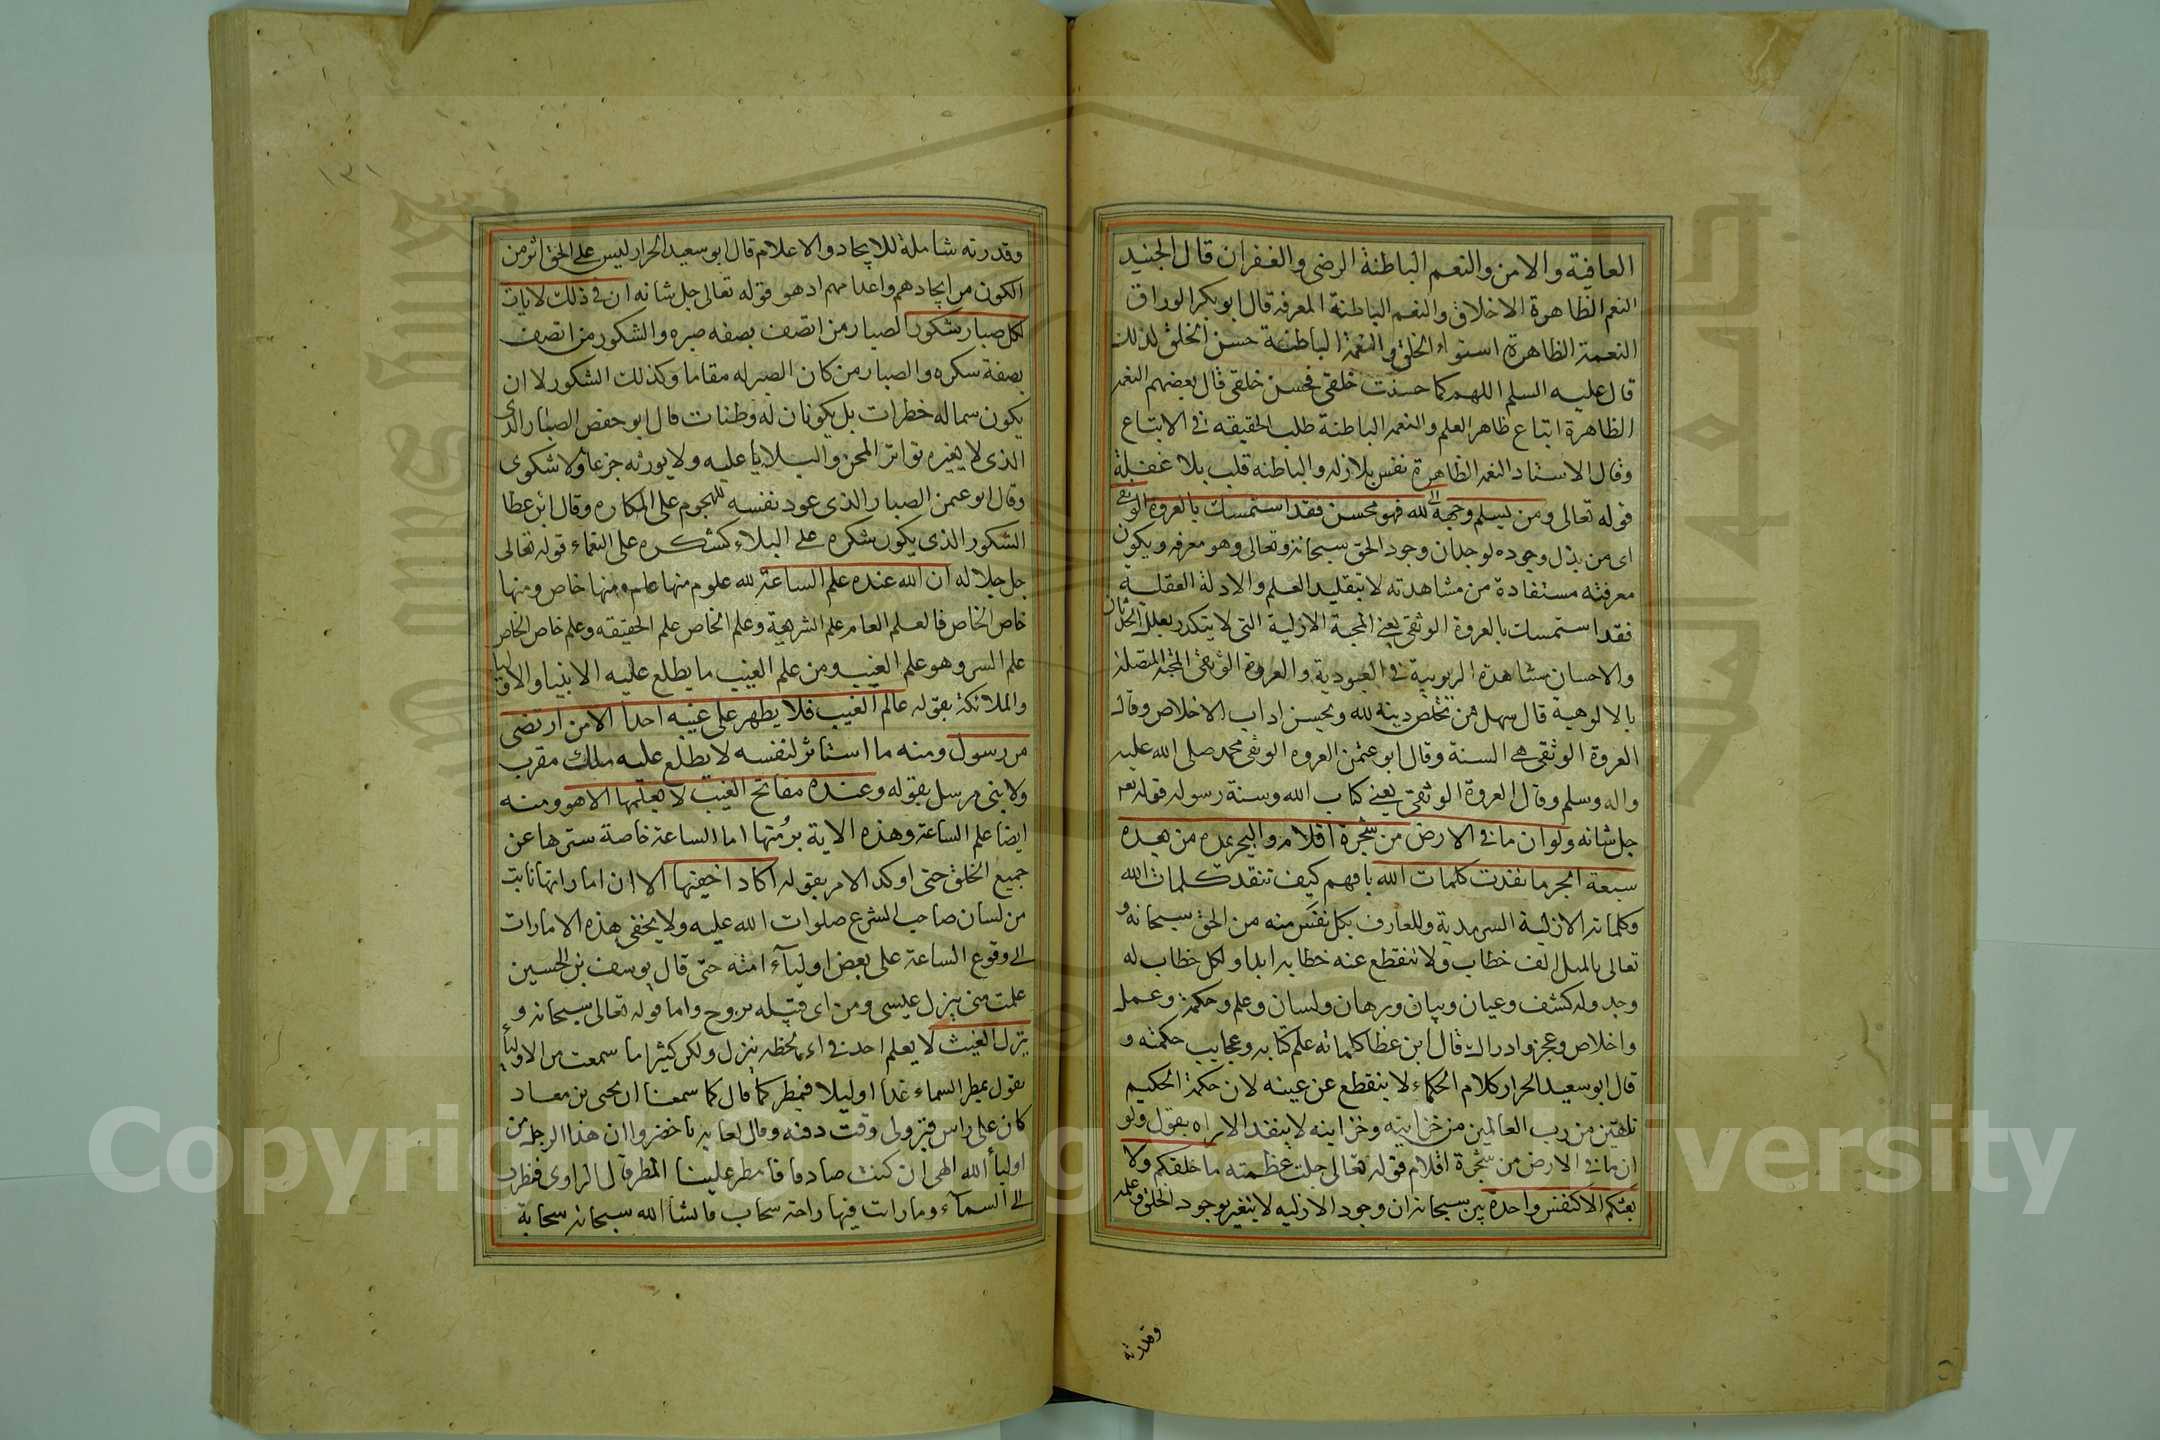 العافية والامن والنعم الباطنة الرضى والغفران قال الجنيد
النعم الظاهرة الاخلاق والنعم الباطنة المعرفه قال ابو بكر الوراق
النعمة الظاهرة استواء الخلق والنعمة الباطنة حسن الخلق لذلك
قال عليه السلم اللهم كما حسنت خلقى فحسن خلقى قال بعضهم النعمه
الظاهرة اتباع ظاهر العلم والنعمه الباطنة طلب الحقيقه فى الاتباع
وقال الاستاد النعمه الظاهرة نفس بلا زله والباطنه قلب بلا غفلة
قوله تعالى ومن يسلم وجهه الى الله فهو محسن فقد استمسك بالعروة الوثقى
اى من بذل وجوده لوجدان وجود الحق سبحانه وتعالى وهو معرفه ويكون
معرفته مستفادة من مشاهدته لا بتقليد العلم والادلة العقلية
فقد استمسك بالعروة الوثقى يعنى المحبة الازلية التى لا يتكدر بعلل الحدثان
والاحسان مشاهدة الربوبية فى العبودية والعروة الوثقى المحبة المتصلة
بالالوهية قال سهل من تخلص دينه لله ويحسن اداب الاخلاص وقال
العروة الوثقى هى السنة وقال ابو عثمن العروه الوثقى محمد صلى الله عليه
واله وسلم وقال العروة الوثقى يعنى كتاب الله وسنة رسوله قوله تعه
جل شانه ولو ان ما فى الارض من شجرة اقلام والبحر يمده من بعده
سبعة ابحر ما نفدت كلمات الله يا فهم كيف تنفد كلمات الله
وكلماته الازلية السرمدية وللعارف بكل نفس منه من الحق سبحانه و
تعالى بالميل الف خطاب ولا ينقطع عنه خطابه ابدا ولكل خطاب له
وجد وله كشف وعيان وبيان وبرهان ولسان وعلم وحكمة وعمل
واخلاص وعجز وادراك قال ابن عطا كلماته علم كتابه وعجايب حكمته و
قال ابو سعيد الحراز كلام الحكماء لا ينقطع عن عينه لان حكمة الحكيم
تلقين من رب العالمين من خزاينه وخزاينه لا ينفد الا تراه يقول ولو
ان ما فى الارض من شجرة اقلام قوله تعالى جلت عظمته ما خلقكم ولا
بعثكم الا كنفس واحدة بين سبحانه ان وجود الازلية لا يتغير بوجود الخلق وعلمه
وقدرته
١٣١
وقدرته شاملة للايجاد والاعلام قال ابو سعيد الحراز ليس على الحق اثر من
الكون من ايجادهم واعدامهم اذ هو قوله تعالى جل شانه ان فى ذلك لايات
لكل صبار شكور الصبار من اتصف بصفه صبره والشكور من اتصف
بصفة شكره والصبار من كان الصبر له مقاما وكذلك الشكور لا ان
يكون سماله خطرات بل يكونان له وطنات قال ابو حفص الصبار الذى
الذى لا يغيره تواتر المحن والبلايا عليه ولا يورثه جزعا ولا شكوى
وقال ابو عثمن الصبار الذى عود نفسه للهجوم على المكاره وقال ابن عطا
الشكور الذى يكون شكره على البلاء كشكره على النعماء قوله تعالى
جل جلاله ان الله عنده علم الساعة لله علوم منها عام ومنها خاص ومنها
خاص الخاص فالعلم العام علم الشريعة وعلم الخاص علم الحقيقه وعلم خاص الخاص
علم السر وهو علم الغيب ومن علم الغيب ما يطلع عليه الانبيا والاوليا
والملائكة بقوله عالم الغيب فلا يظهر على غيبه احدا الا من ارتضى
من رسول ومنه ما استاثر لنفسه لا يطلع عليه ملك مقرب
ولا نبى مرسل بقوله وعنده مفاتح الغيب لا يعلمها الا هو ومنه
ايضا علم الساعة وهذه الاية برمتها اما الساعة خاصة سترها عن
جميع الخلق حتى اوكد الامر بقوله اكاد اخفيها الا ان اماراتها نابت
من لسان صاحب الشرع صلوات الله عليه ولا يخفى هذه الامارات
الى وقوع الساعة على بعض اولياء امته حتى قال يوسف بن الحسين
علمت متى ينزل عيسى ومن اى قبيله يروح واما قوله تعالى سبحانه و
ينزل الغيث لا يعلم احد فى اى لحظه ينزل ولكن كثيرا ما سمعت من الاولياء
يقول يمطر السماء غدا او ليلا فيمطر كما قال كما سمعنا ان يحيى بن معاد
كان على راس قبر ولى وقت دفنه وقال لعابه ما حضروا ان هذا الرجل من
اولياء الله الهى ان كنت صادقا فامطر علينا المطر قال الراوى فنظرت
الى السماء وما رات فيها راحة سحاب فانشا الله سبحانه سحابة
Copyright © King Saud University